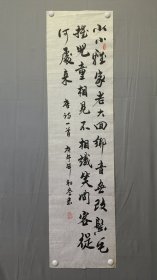 少小離家老大回鄉音無改鬢毛
摧兒童相見不相識笑問客從
何處來 唐詩一首